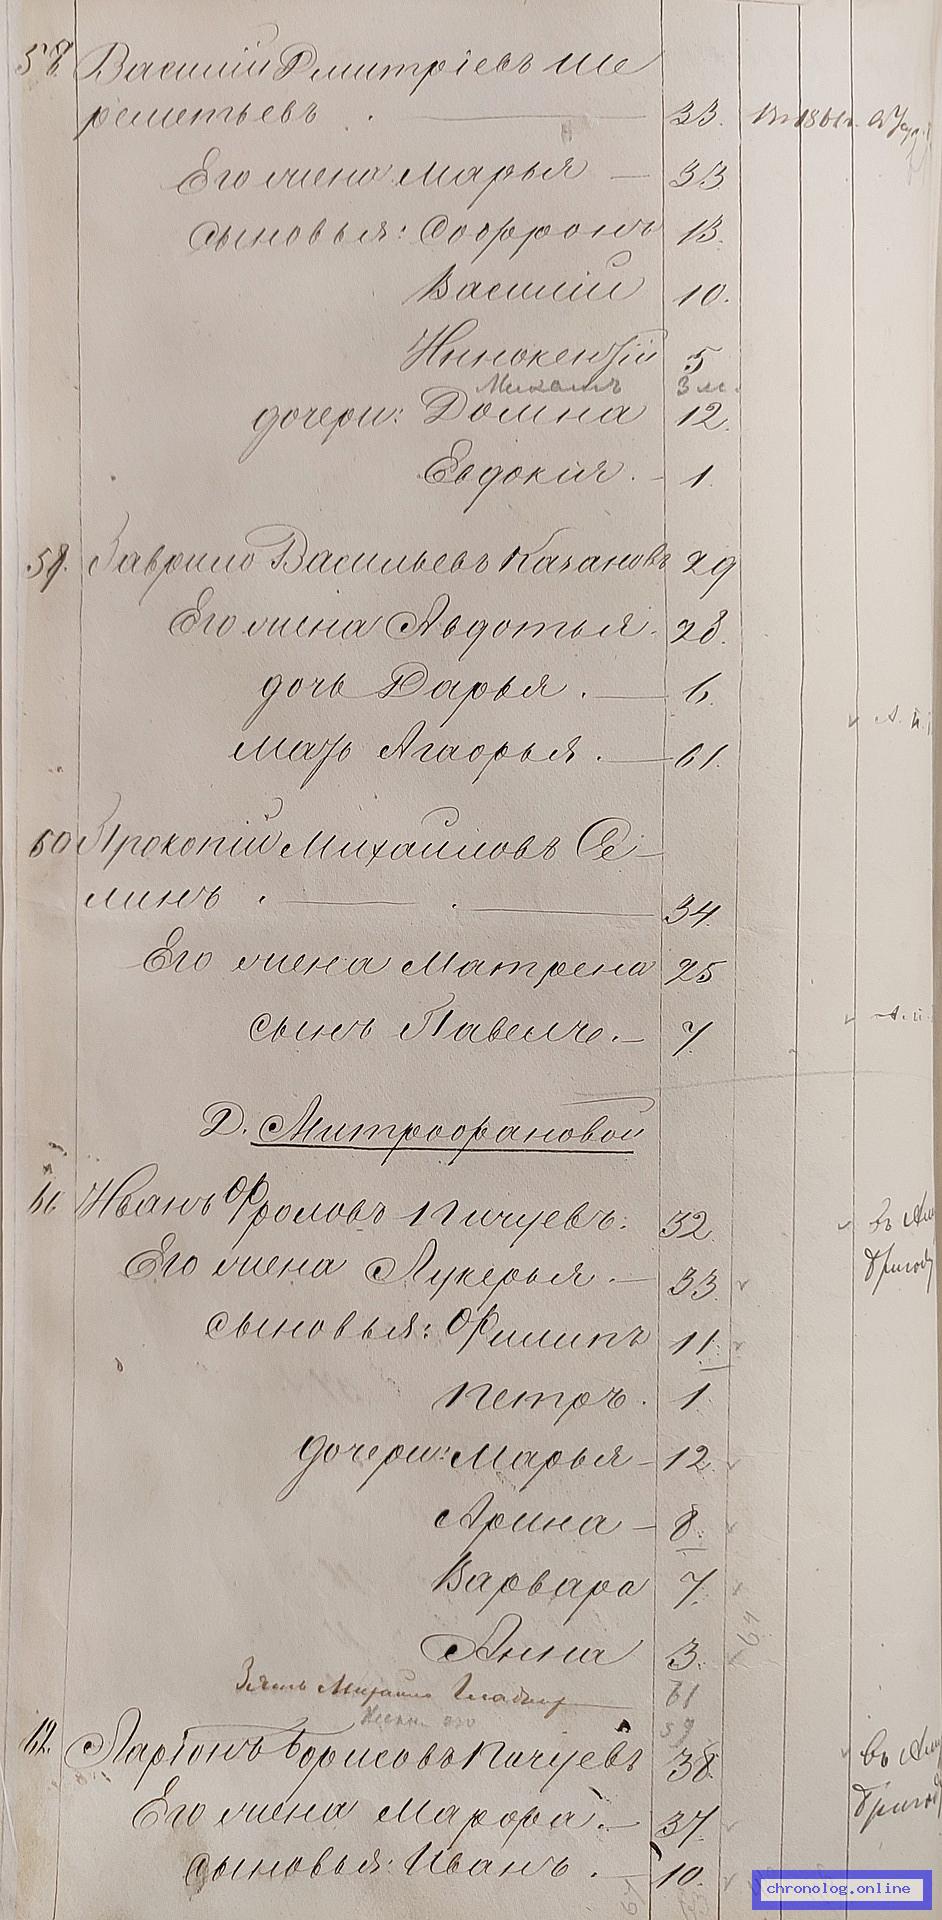 58. Василій Дмитріевъ Ше
реметьевъ . — 33. въ 1861 г.
Его жена Марья — 33
сыновья: Софронъ 13.
Василій 10.
Иннокентій 5
Михаилъ 3 м.
дочери: Домна 12.
Евдокия. - 1.
59. Гаврило Васильевъ Качановъ 29
Его жена Авдотья. 28.
дочь Дарья. — 6.
мать Агафья. — 61.
60 Прокопій Михаиловъ Се-
линъ . — . — 34.
Его жена Матрена 25
сынъ Павелъ. — 7.
Д. Митрофановой
61 Иванъ Фроловъ Пичуевъ. 32.
Его жена Лукерья. — 33.
сыновья: Филипъ 11.
Петръ. 1.
дочери: Марья - 12.
Арина - 8.
Варвара 7.
Анна 3.
Зять Михаило 61
59
62. Ларіонъ Борисовъ Пичуевъ 38.
Его жена Марфа. — 37.
сыновья: Иванъ. — 10.
chronolog.online